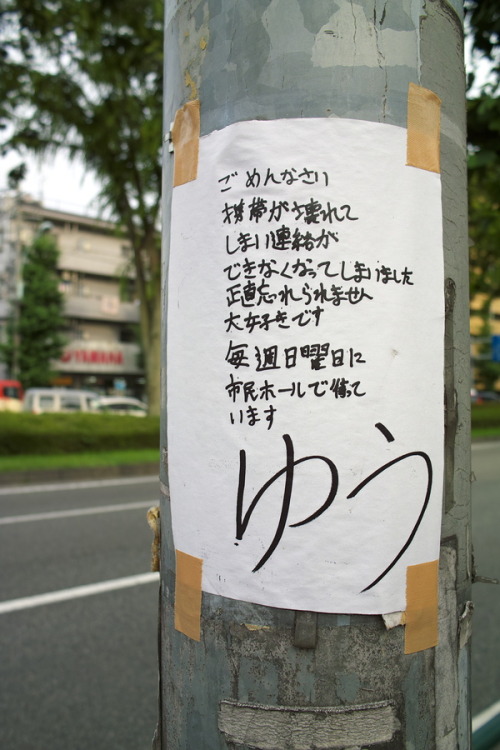 ごめんなさい
携帯が壊れて
しまい連絡が
できなくなってしまいました
正直忘れられません
大好きです
毎週日曜日に
市民ホールで待って
います
ゆう
YAMAHA